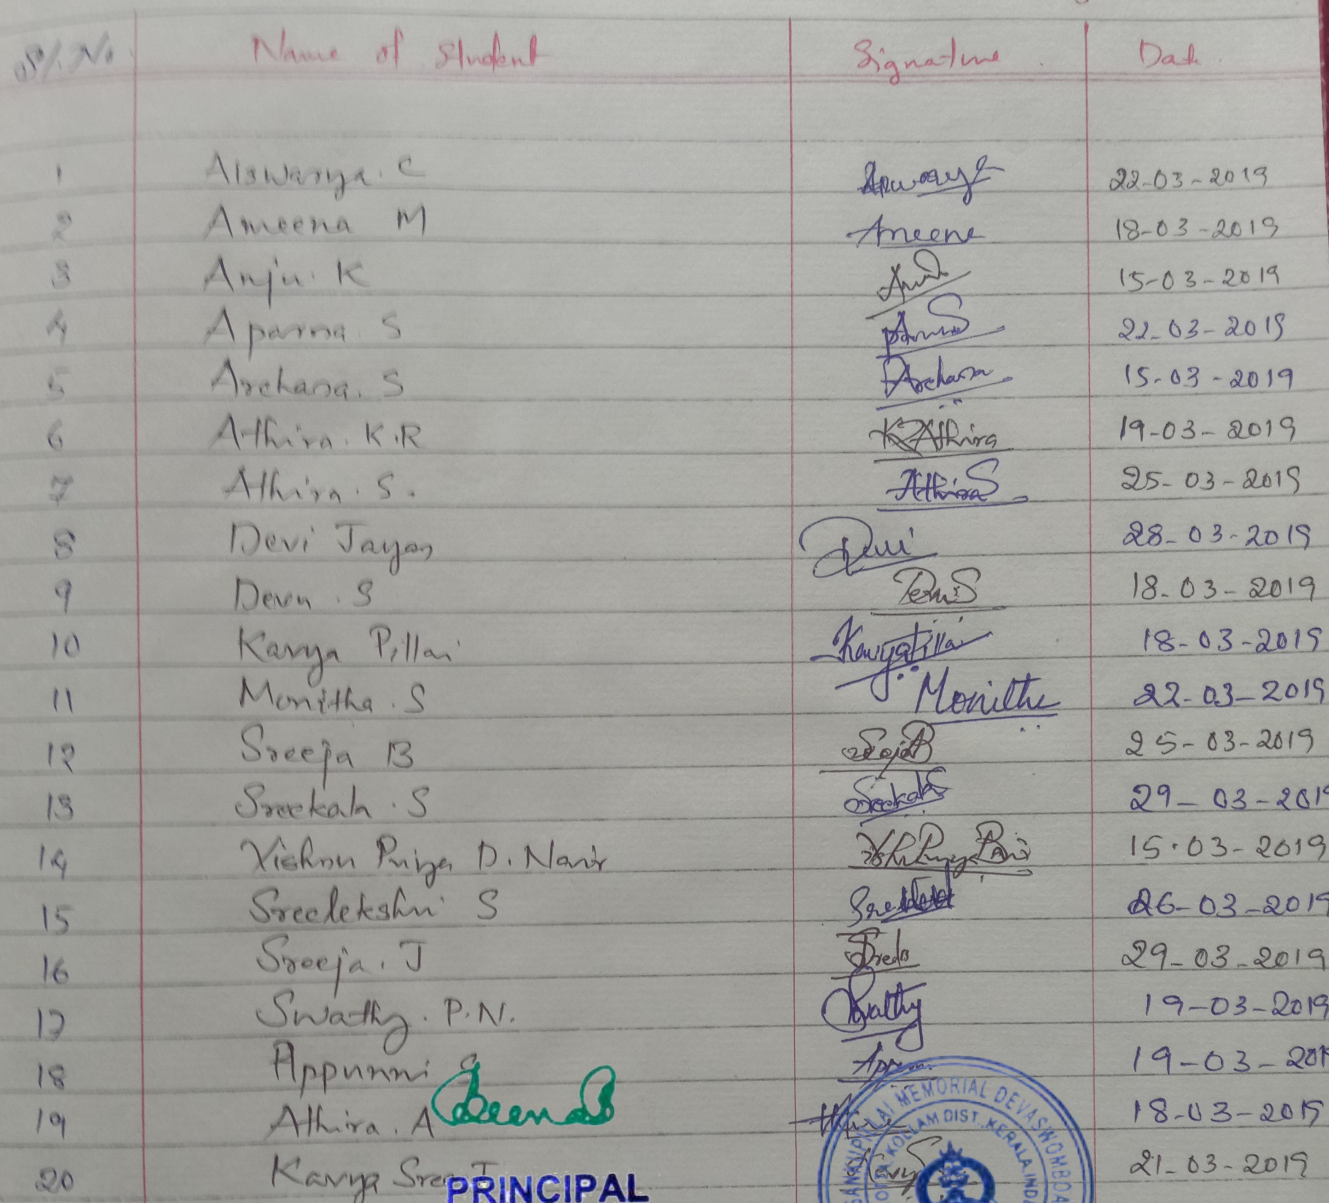 Sl. No Name of Student Signature Date
1 Aiswarya. C Aiswarya C 22-03-2019
2 Ameena M Ameena 18-03-2019
3 Anju. K 15-03-2019
4 Aparna. S 22-03-2019
5 Archana. S Archana 15-03-2019
6 Athira. K.R K R Athira 19-03-2019
7 Athira. S. Athira S 25-03-2019
8 Devi Jayan Devi 28-03-2019
9 Devu. S Devu S 18-03-2019
10 Kavya Pillai Kavya Pillai 18-03-2019
11 Monitha. S Monitha 22-03-2019
12 Sreeja B Sreeja B 25-03-2019
13 Sreekala. S Sreekala S 29-03-2019
14 Vishnu Priya D. Nair 15.03-2019
15 Sreelekshmi S 26-03-2019
16 Sreeja. J 29-03-2019
17 Swathy. P.N. Swathy 19-03-2019
18 Appunni S 19-03-2019
19 Athira. A 18-03-2019
20 Kavya Sree 21-03-2019
Beena
PRINCIPAL
PILLAI MEMORIAL DEVASWOM BOA
KOLLAM DIST. KERALA, IND